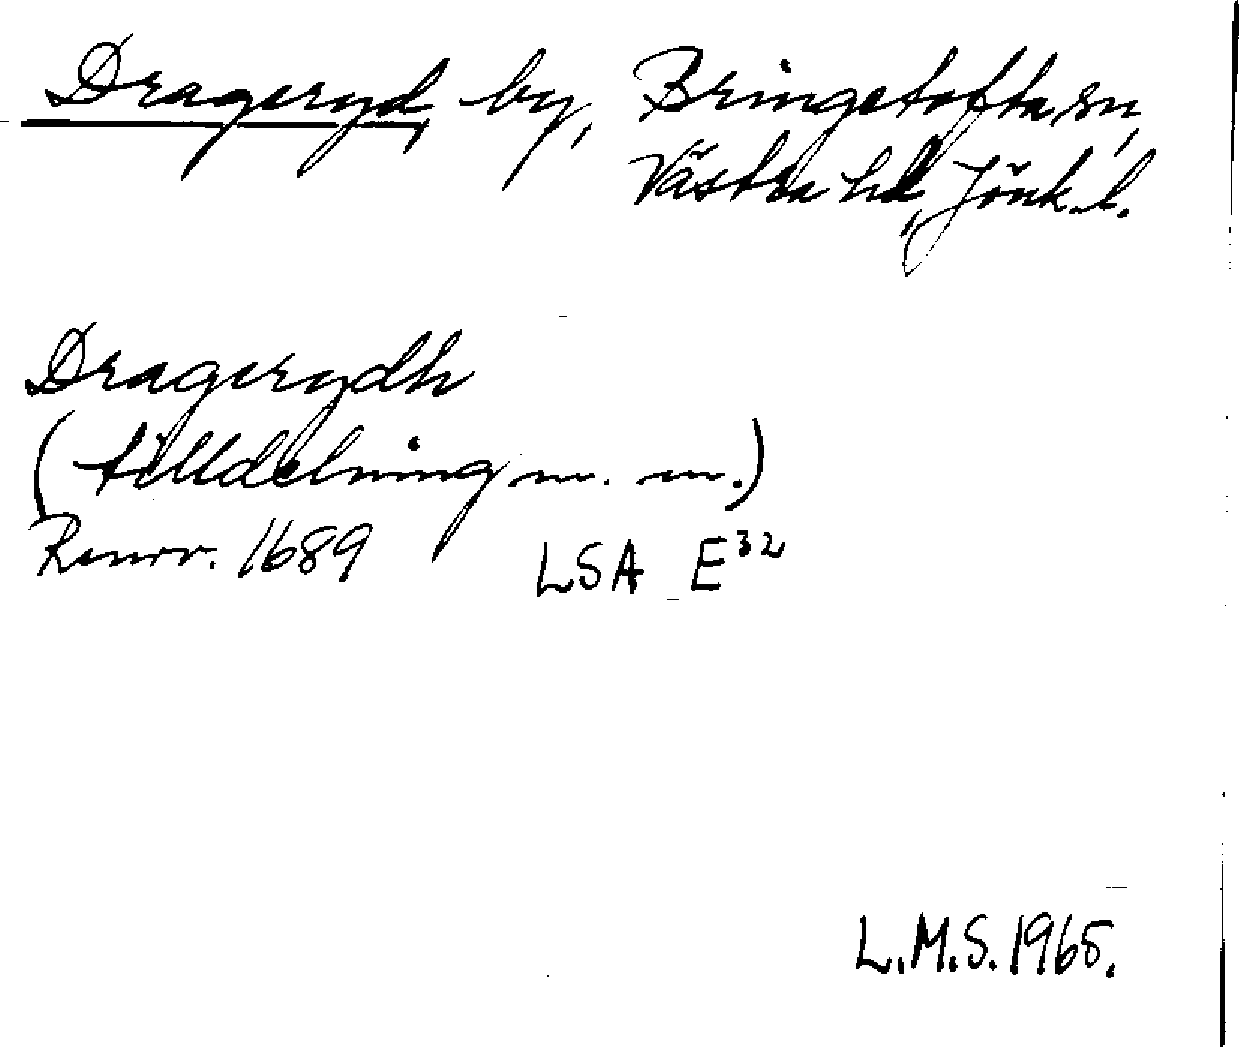 Drageryd by, Bringetofta sn,
Västra hd, Jönk. l.
Dragerydh
(tilldelning m. m.)
Renov. 1689 LSA E³²
L.M.S. 1965.